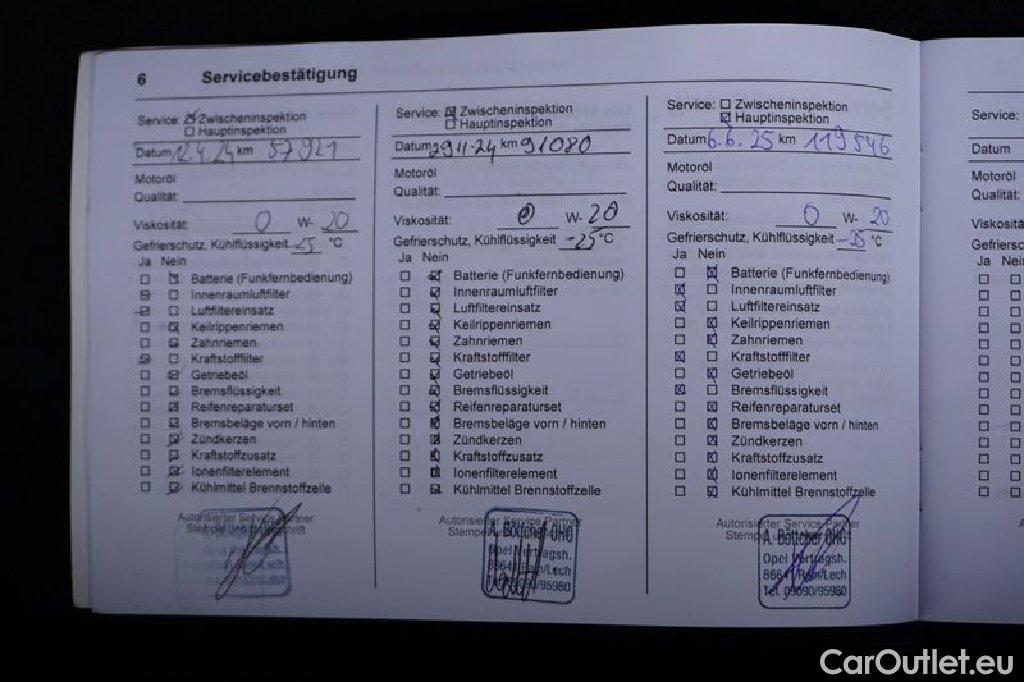 6 Servicebestätigung
Service: ☒ Zwischeninspektion
☐ Hauptinspektion
Datum 12.4.24 km 57921
Motoröl
Qualität:
Viskosität: 0 W- 20
Gefrierschutz, Kühlflüssigkeit -25 °C
Ja Nein
☐ ☒ Batterie (Funkfernbedienung)
☒ ☐ Innenraumluftfilter
☒ ☐ Luftfiltereinsatz
☐ ☒ Keilrippenriemen
☐ ☒ Zahnriemen
☒ ☐ Kraftstofffilter
☐ ☒ Getriebeöl
☐ ☒ Bremsflüssigkeit
☐ ☒ Reifenreparaturset
☐ ☒ Bremsbeläge vorn / hinten
☐ ☒ Zündkerzen
☐ ☒ Kraftstoffzusatz
☐ ☒ Ionenfilterelement
☐ ☒ Kühlmittel Brennstoffzelle
Autorisierter Service Partner
Stempel und
Opel Vertragsh.
Service: ☒ Zwischeninspektion
☐ Hauptinspektion
Datum 29.11.24 km 91080
Motoröl
Qualität:
Viskosität: 0 W- 20
Gefrierschutz, Kühlflüssigkeit -25 °C
Ja Nein
☐ ☒ Batterie (Funkfernbedienung)
☐ ☒ Innenraumluftfilter
☐ ☒ Luftfiltereinsatz
☐ ☒ Keilrippenriemen
☐ ☒ Zahnriemen
☐ ☒ Kraftstofffilter
☐ ☒ Getriebeöl
☐ ☒ Bremsflüssigkeit
☐ ☒ Reifenreparaturset
☐ ☒ Bremsbeläge vorn / hinten
☐ ☒ Zündkerzen
☐ ☒ Kraftstoffzusatz
☐ ☒ Ionenfilterelement
☐ ☒ Kühlmittel Brennstoffzelle
Autorisierter Service Partner
Stempel
A. Böttcher OHG
Opel Vertragsh.
86641 Rain/Lech
Tel. 09090/95980
Service: ☐ Zwischeninspektion
☒ Hauptinspektion
Datum 6.6.25 km 119546
Motoröl
Qualität:
Viskosität: 0 W- 20
Gefrierschutz, Kühlflüssigkeit -25 °C
Ja Nein
☐ ☒ Batterie (Funkfernbedienung)
☒ ☐ Innenraumluftfilter
☒ ☐ Luftfiltereinsatz
☐ ☒ Keilrippenriemen
☐ ☒ Zahnriemen
☒ ☐ Kraftstofffilter
☐ ☒ Getriebeöl
☒ ☐ Bremsflüssigkeit
☐ ☒ Reifenreparaturset
☐ ☒ Bremsbeläge vorn / hinten
☐ ☒ Zündkerzen
☐ ☒ Kraftstoffzusatz
☐ ☒ Ionenfilterelement
☐ ☒ Kühlmittel Brennstoffzelle
Autorisierter Service Partner
Stempel
A. Böttcher OHG
Opel Vertragsh.
86641 Rain/Lech
Tel. 09090/95980
Service:
Datum
Motoröl
Qualität:
Viskosità
Gefriersc
Ja Nei
CarOutlet.eu